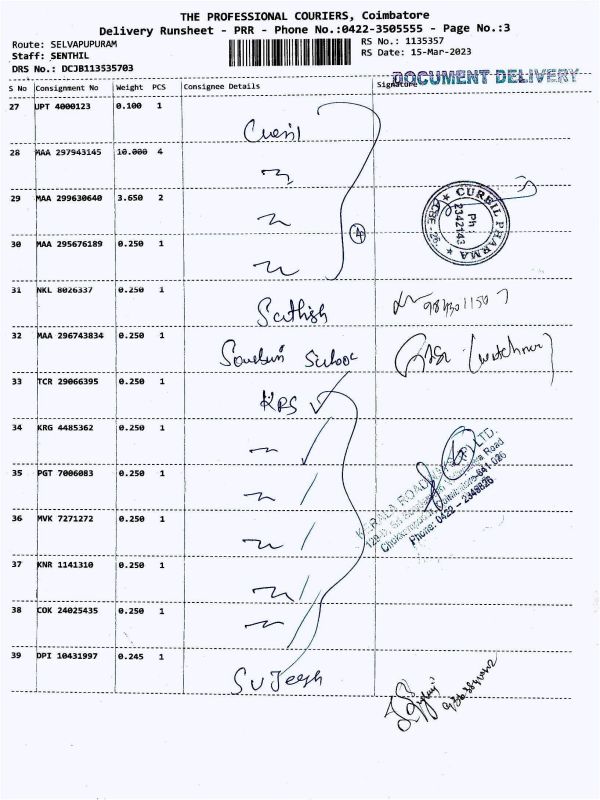 THE PROFESSIONAL COURIERS, Coimbatore
Delivery Runsheet - PRR - Phone No.:0422-3505555 - Page No.:3
Route: SELVAPUPURAM
Staff: SENTHIL
DRS No.: DCJB113535703
RS No.: 1135357
RS Date: 15-Mar-2023
DOCUMENT DELIVERY
S No Consignment No Weight PCS Consignee Details Signature
27 UPT 4000123 0.100 1
28 MAA 297943145 10.000 4
29 MAA 299630640 3.650 2
30 MAA 295676189 0.250 1
4
CUREIL PHARMA
Ph: 2342143
CBE - 26.
31 NKL 8026337 0.250 1 Sathish
32 MAA 296743834 0.250 1 School
33 TCR 29066395 0.250 1 KRS
34 KRG 4485362 0.250 1
35 PGT 7006083 0.250 1
36 MVK 7271272 0.250 1
37 KNR 1141310 0.250 1
38 COK 24025435 0.250 1
KERALA ROADWAYS (P) LTD.
Road
Coimbatore-641 026
Phone: 0422 - 2349826
39 DPI 10431997 0.245 1 SuJeesh